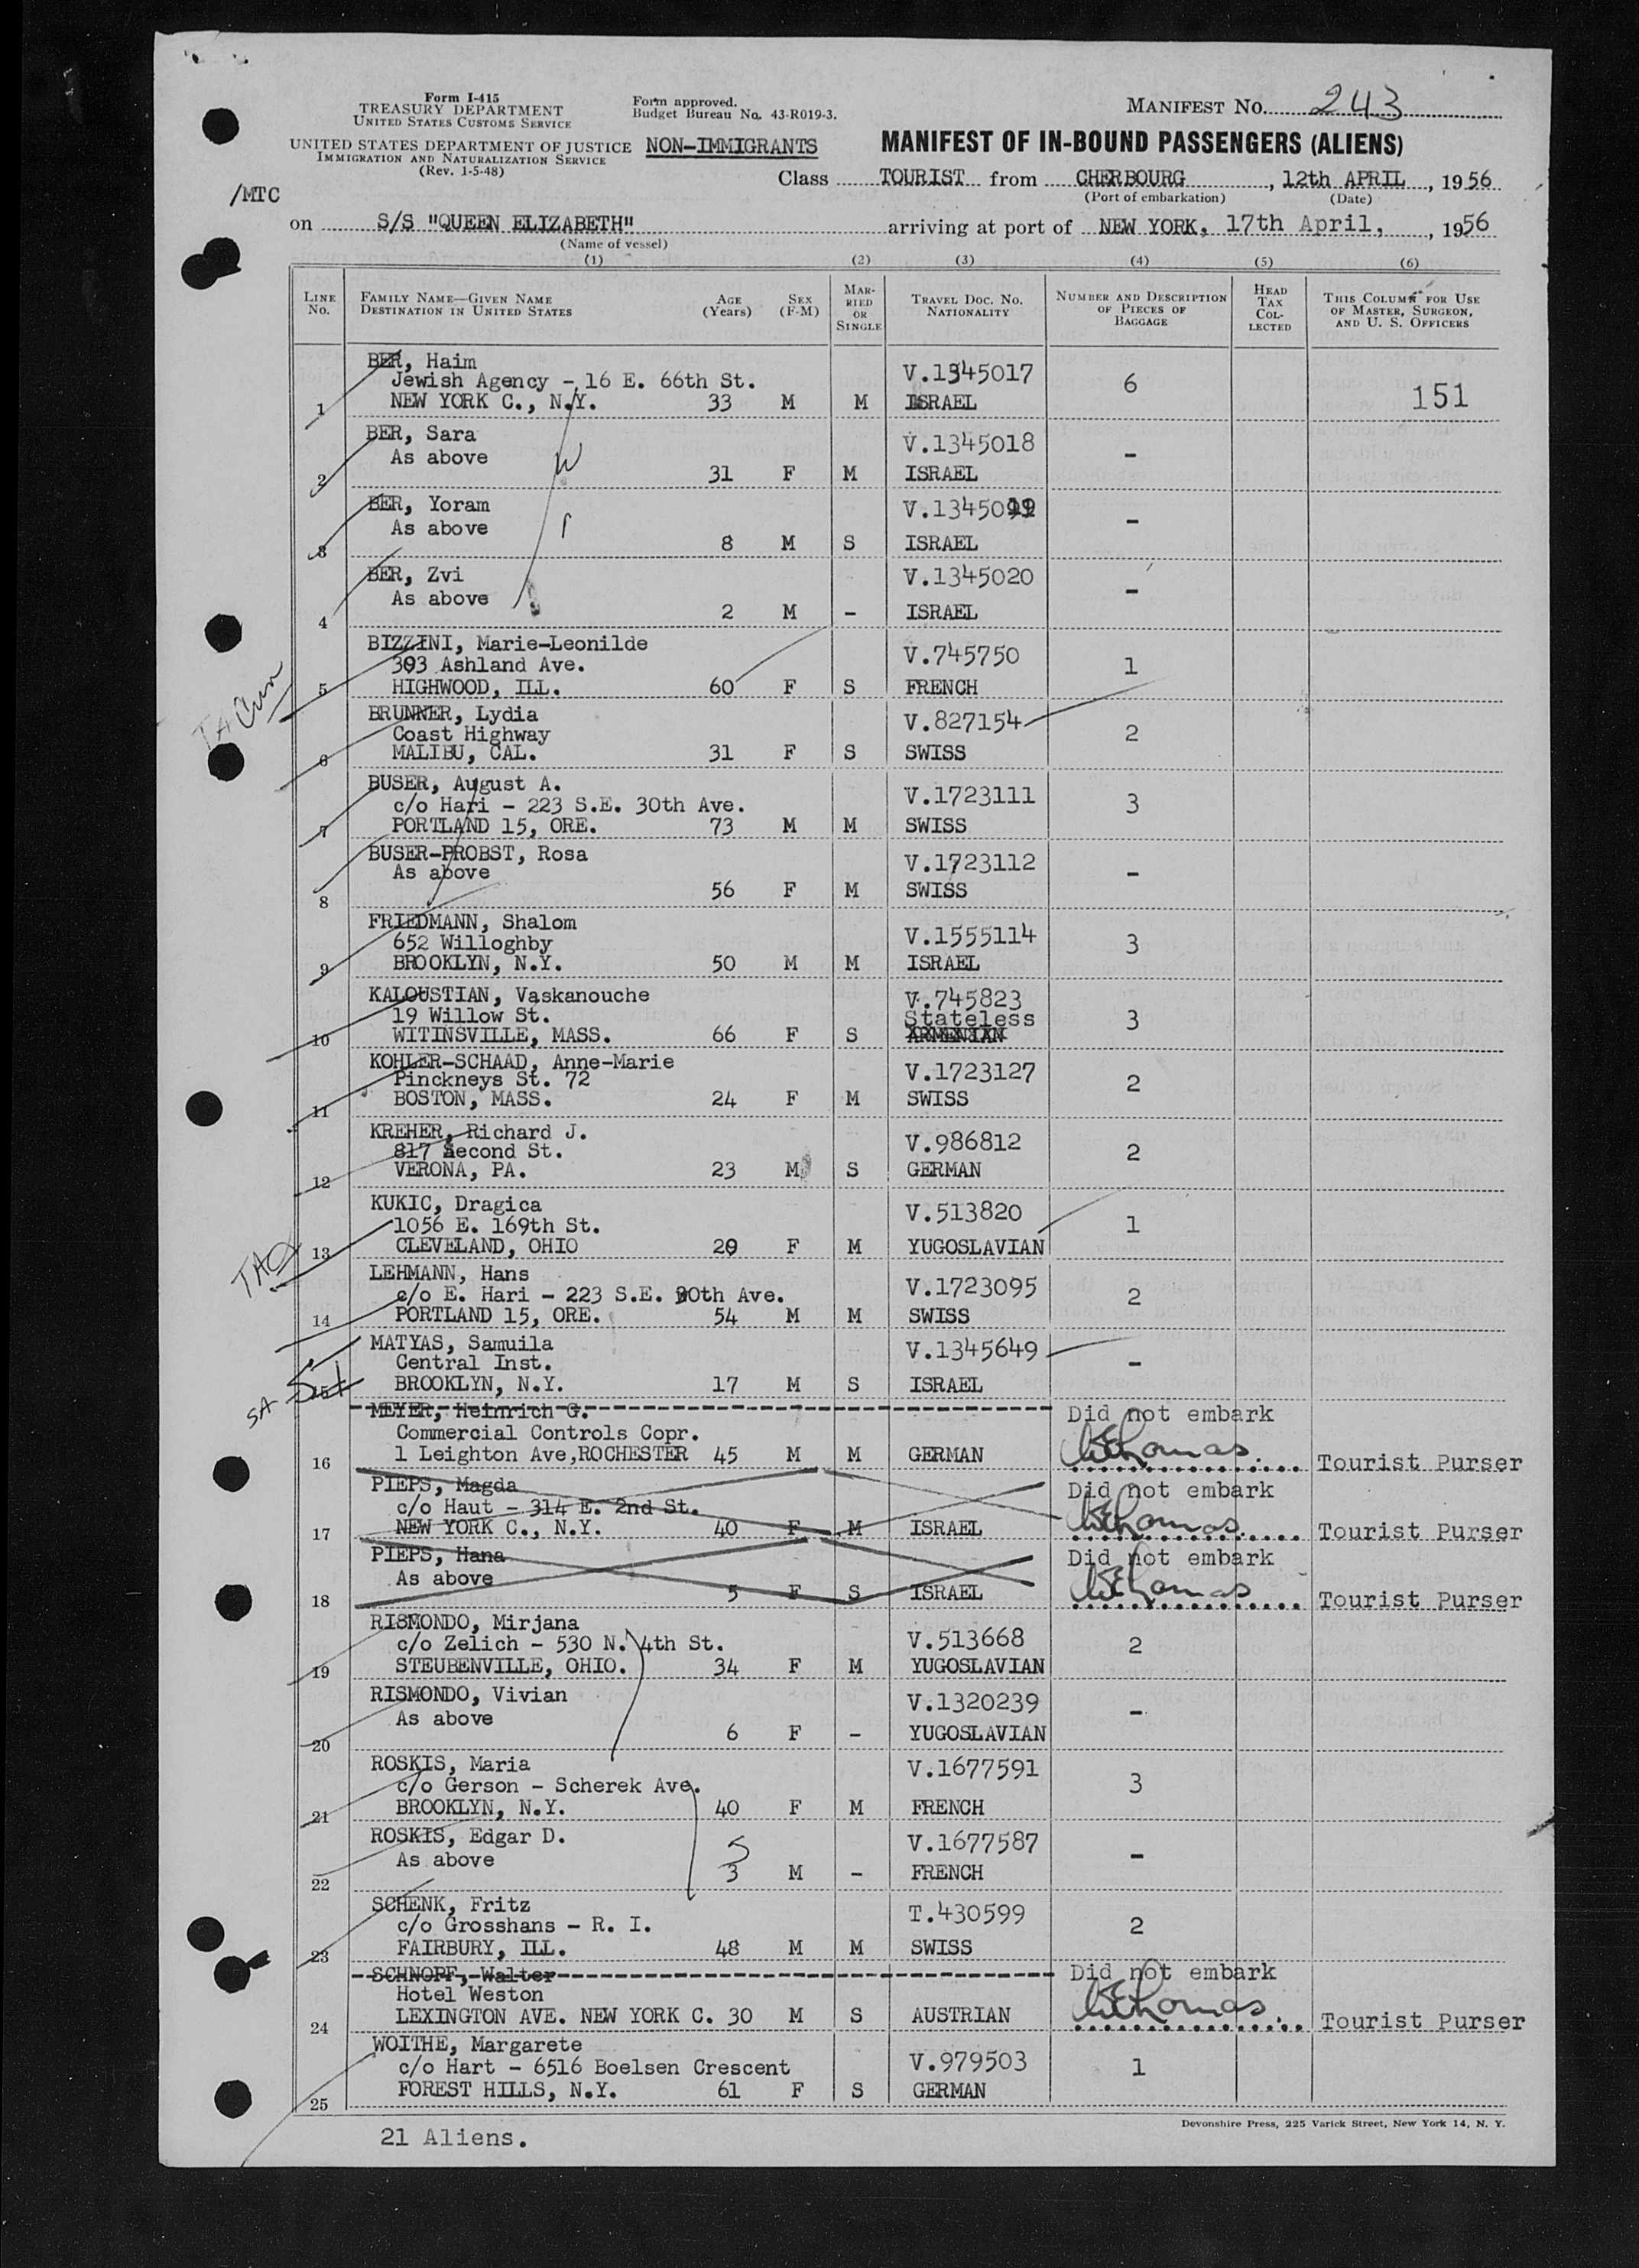 Form I-415
TREASURY DEPARTMENT
UNITED STATES CUSTOMS SERVICE
UNITED STATES DEPARTMENT OF JUSTICE
IMMIGRATION AND NATURALIZATION SERVICE
(Rev. 1-5-48)
Form approved.
Budget Bureau No. 43-R019-3.
NON-IMMIGRANTS
MANIFEST NO. 243
MANIFEST OF IN-BOUND PASSENGERS (ALIENS)
Class TOURIST from CHERBOURG, 12th APRIL, 1956
(Port of embarkation) (Date)
/MTC
on S/S "QUEEN ELIZABETH" arriving at port of NEW YORK, 17th April, 1956
(Name of vessel)
(1) (2) (3) (4) (5) (6)
LINE NO. FAMILY NAME—GIVEN NAME DESTINATION IN UNITED STATES AGE (Years) SEX (F-M) MARRIED OR SINGLE TRAVEL DOC. NO. NATIONALITY NUMBER AND DESCRIPTION OF PIECES OF BAGGAGE HEAD TAX COLLECTED THIS COLUMN FOR USE OF MASTER, SURGEON, AND U. S. OFFICERS
BER, Haim V.1345017
Jewish Agency - 16 E. 66th St. 6
1 NEW YORK C., N.Y. 33 M M ISRAEL 151
BER, Sara V.1345018
As above W -
2 31 F M ISRAEL
BER, Yoram V.1345019
As above -
3 8 M S ISRAEL
BER, Zvi V.1345020
As above -
4 2 M - ISRAEL
BIZZINI, Marie-Leonilde V.745750
393 Ashland Ave. 1
5 HIGHWOOD, ILL. 60 F S FRENCH
BRUNNER, Lydia V.827154
Coast Highway 2
6 MALIBU, CAL. 31 F S SWISS
BUSER, August A. V.1723111
c/o Hari - 223 S.E. 30th Ave. 3
7 PORTLAND 15, ORE. 73 M M SWISS
BUSER-PROBST, Rosa V.1723112
As above -
8 56 F M SWISS
FRIEDMANN, Shalom V.1555114
652 Willoghby 3
9 BROOKLYN, N.Y. 50 M M ISRAEL
KALOUSTIAN, Vaskanouche V.745823
19 Willow St. Stateless 3
10 WITINSVILLE, MASS. 66 F S ARMENIAN
KOHLER-SCHAAD, Anne-Marie V.1723127
Pinckneys St. 72 2
11 BOSTON, MASS. 24 F M SWISS
KREHER, Richard J. V.986812
817 Second St. 2
12 VERONA, PA. 23 M S GERMAN
KUKIC, Dragica V.513820
1056 E. 169th St. 1
13 CLEVELAND, OHIO 29 F M YUGOSLAVIAN
LEHMANN, Hans V.1723095
c/o E. Hari - 223 S.E. 30th Ave. 2
14 PORTLAND 15, ORE. 54 M M SWISS
MATYAS, Samuila V.1345649
Central Inst. -
SA 15 BROOKLYN, N.Y. 17 M S ISRAEL
MEYER, Heinrich G. Did not embark
Commercial Controls Copr.
16 1 Leighton Ave,ROCHESTER 45 M M GERMAN Tourist Purser
PIEPS, Magda Did not embark
c/o Haut - 314 E. 2nd St.
17 NEW YORK C., N.Y. 40 F M ISRAEL Tourist Purser
PIEPS, Hana Did not embark
As above
18 5 F S ISRAEL Tourist Purser
RISMONDO, Mirjana V.513668
c/o Zelich - 530 N. 4th St. 2
19 STEUBENVILLE, OHIO. 34 F M YUGOSLAVIAN
RISMONDO, Vivian V.1320239
As above -
20 6 F - YUGOSLAVIAN
ROSKIS, Maria V.1677591
c/o Gerson - Scherek Ave. 3
21 BROOKLYN, N.Y. 40 F M FRENCH
ROSKIS, Edgar D. V.1677587
As above 5 -
22 3 M - FRENCH
SCHENK, Fritz T.430599
c/o Grosshans - R. I. 2
23 FAIRBURY, ILL. 48 M M SWISS
SCHNOPF, Walter Did not embark
Hotel Weston
24 LEXINGTON AVE. NEW YORK C. 30 M S AUSTRIAN Tourist Purser
WOITHE, Margarete V.979503
c/o Hart - 6516 Boelsen Crescent 1
25 FOREST HILLS, N.Y. 61 F S GERMAN
Devonshire Press, 225 Varick Street, New York 14, N. Y.
21 Aliens.